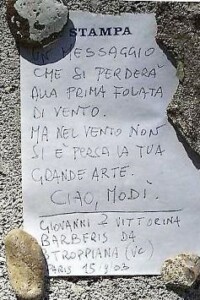 STAMPA
UN MESSAGGIO
CHE SI PERDERÀ
ALLA PRIMA FOLATA
DI VENTO.
MA NEL VENTO NON
SI È PERSA LA TUA
GRANDE ARTE.
CIAO, MODÌ.
GIOVANNI E VITTORINA
BARBERIS DA
STROPPIANA (VC)
PARIS 15.9.03